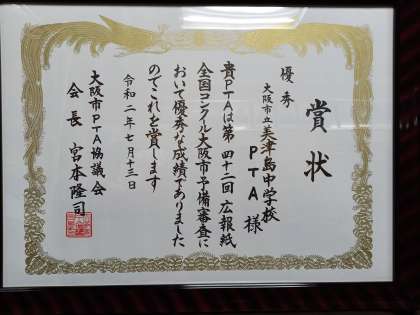 賞状
優秀
大阪市立美津島中学校
PTA様
貴PTAは第四十二回広報紙
全国コンクール大阪市予備審査に
おいて優秀な成績でありました
のでこれを賞します
令和二年七月十三日
大阪市PTA協議会
会長 宮本隆司